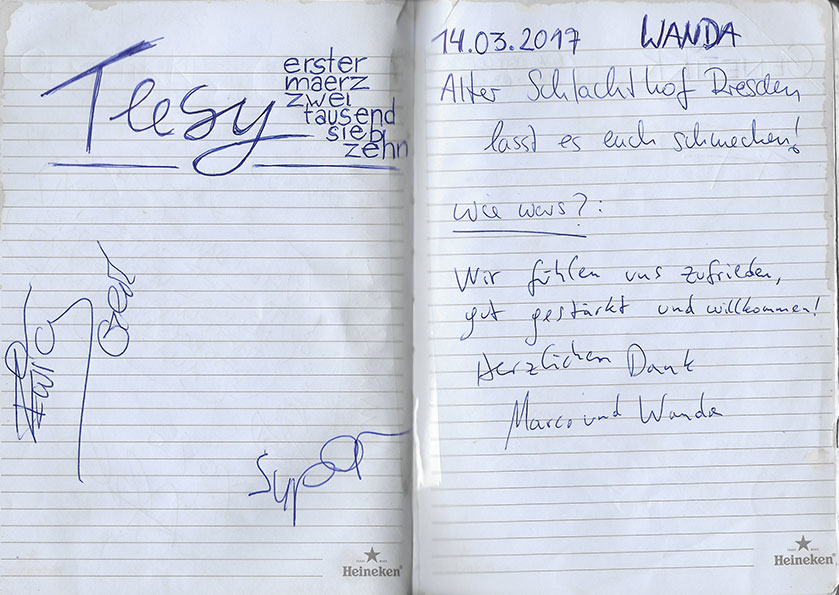 erster
maerz
zwei
tausend
sieb
zehn
Heineken
14.03.2017 WANDA
Alter Schlachthof Dresden
lasst es euch schmecken!
Wie wars?:
Wir fühlen uns zufrieden,
gut gestärkt und willkommen!
Herzlichen Dank
Marco und Wanda
Heineken